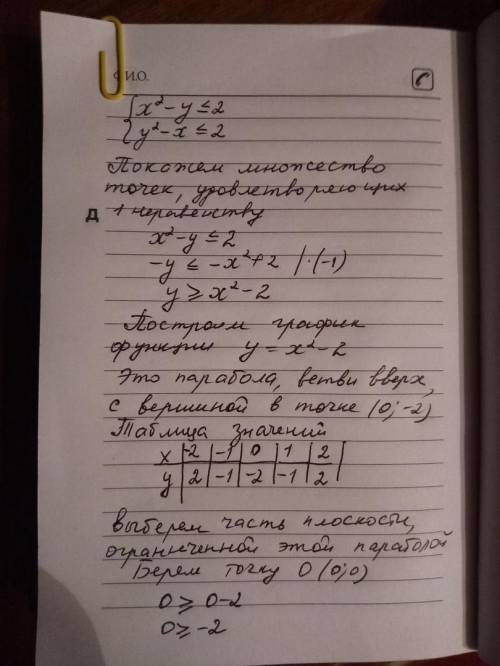 Ф.И.О.
{ x² - y ≤ 2
{ y² - x ≤ 2
Покажем множество
точек, удовлетворяющих
Д
1 неравенству
x² - y ≤ 2
-y ≤ -x² + 2 | · (-1)
y ≥ x² - 2
Построим график
функции y = x² - 2
Это парабола, ветви вверх,
с вершиной в точке (0; -2)
Таблица значений
x | -2 | -1 | 0 | 1 | 2 |
y | 2 | -1 | -2 | -1 | 2 |
выберем часть плоскости,
ограниченной этой параболой
Берем точку O (0; 0)
0 ≥ 0 - 2
0 ≥ -2